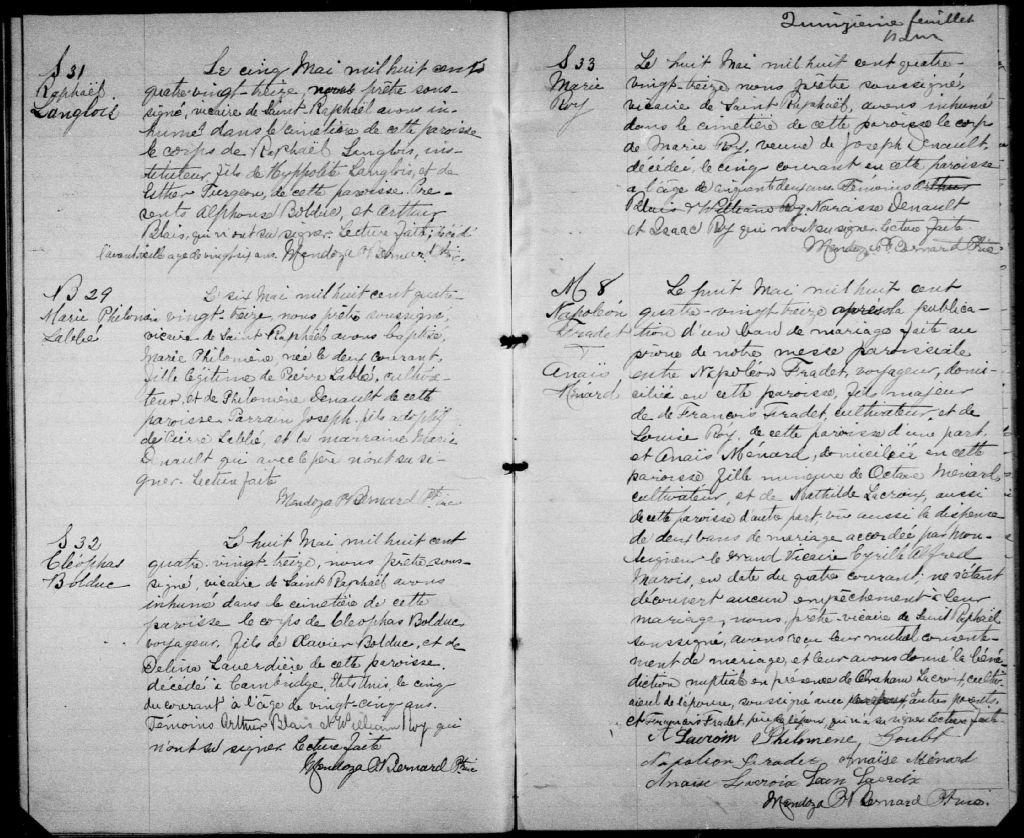 S 31
Raphaël
Langlois
Le cinq Mai mil huit cent
quatre-vingt-treize, nous prêtre sous-
signé, vicaire de Saint-Raphaël avons in-
humé dans le cimetière de cette paroisse
le corps de Raphaël Langlois, ins-
tituteur, fils de Hyppolite Langlois, et de
Esther Turgeon, de cette paroisse. Pré-
sents Alphonse Bolduc, et Arthur
Blais, qui n'ont su signer. Lecture faite; décédé
l'avant-veille agé de vingt six ans. Mendoza P Bernard Ptre vic.
B 29
Marie Philomène
Labbé
Le six Mai mil huit cent quatre-
vingt-treize, nous prêtre soussigné,
vicaire de Saint Raphaël avons baptisé
Marie Philomène née le deux courant,
fille légitime de Pierre Labbé, cultiva-
teur, et de Philomène Denault de cette
paroisse. Parrain Joseph, fils adoptif
de Pierre Labbé, et la marraine Marie
Denault qui avec le père n'ont su si-
gner. Lecture faite
Mendoza P Bernard Ptre vic
S 32
Cléophas
Bolduc
Le huit Mai mil huit cent
quatre-vingt-treize, nous, prêtre sous-
signé, vicaire de Saint Raphaël avons
inhumé dans le cimetière de cette
paroisse le corps de Cléophas Bolduc,
voyageur, fils de Xavier Bolduc, et de
Delina Laverdière de cette paroisse.
décédé à Cambridge, Etats Unis, le cinq
du courant à l'âge de vingt-cinq ans.
Témoins Arthur Blais et William Roy qui
n'ont su signer. Lecture faite
Mendoza P Bernard Ptre vic
Quinzième feuillet
S 33
Marie
Roy
Le huit Mai mil huit cent quatre-
vingt-treize, nous prêtre soussigné,
vicaire de Saint Raphaël, avons inhumé
dans le cimetière de cette paroisse le corps
de Marie Roy, veuve de Joseph Denault,
décédée le cinq courant en cette paroisse
à l'âge de cinquante deux ans. Témoins Arthur
Blais & William Roy Narcisse Denault
et Isaac Roy qui n'ont su signer. Lecture faite
Mendoza P Bernard Ptre vic
M 8
Napoléon
Fradet
&
Anaïs
Ménard
Le huit Mai mil huit cent
quatre-vingt treize après la publica-
tion d'un ban de mariage faite au
prône de notre messe paroissiale
entre Napoléon Fradet, voyageur, domi-
cilié en cette paroisse, fils majeur
de de François Fradet, cultivateur, et de
Louise Roy, de cette paroisse d'une part,
et Anaïs Ménard, domiciliée en cette
paroisse fille mineure de Octave Ménard,
cultivateur, et de Mathilde Lacroix, aussi
de cette paroisse d'autre part, vu aussi la dispense
de deux bans de mariage accordée par Mon-
seigneur le Grand Vicaire Cyrille Alfred
Marois, en date du quatre courant; ne s'étant
découvert aucun empêchement à leur
mariage, nous, prêtre-vicaire de Saint Raphaël
soussigné, avons reçu leur mutuel consente-
ment de mariage, et leur avons donné la béné-
diction nuptiale en présence de Abraham Lacroix,
aïeul de l'épouse, soussigné avec autres parents,
et François Fradet, père de l'époux, qui n'a su signer. Lecture faite
A Lacroix Philomène Goulet
Napoléon Fradet, Anaïse Ménard
Anaise Lacroix Léon Lacroix
Mendoza P Bernard Ptre vic.